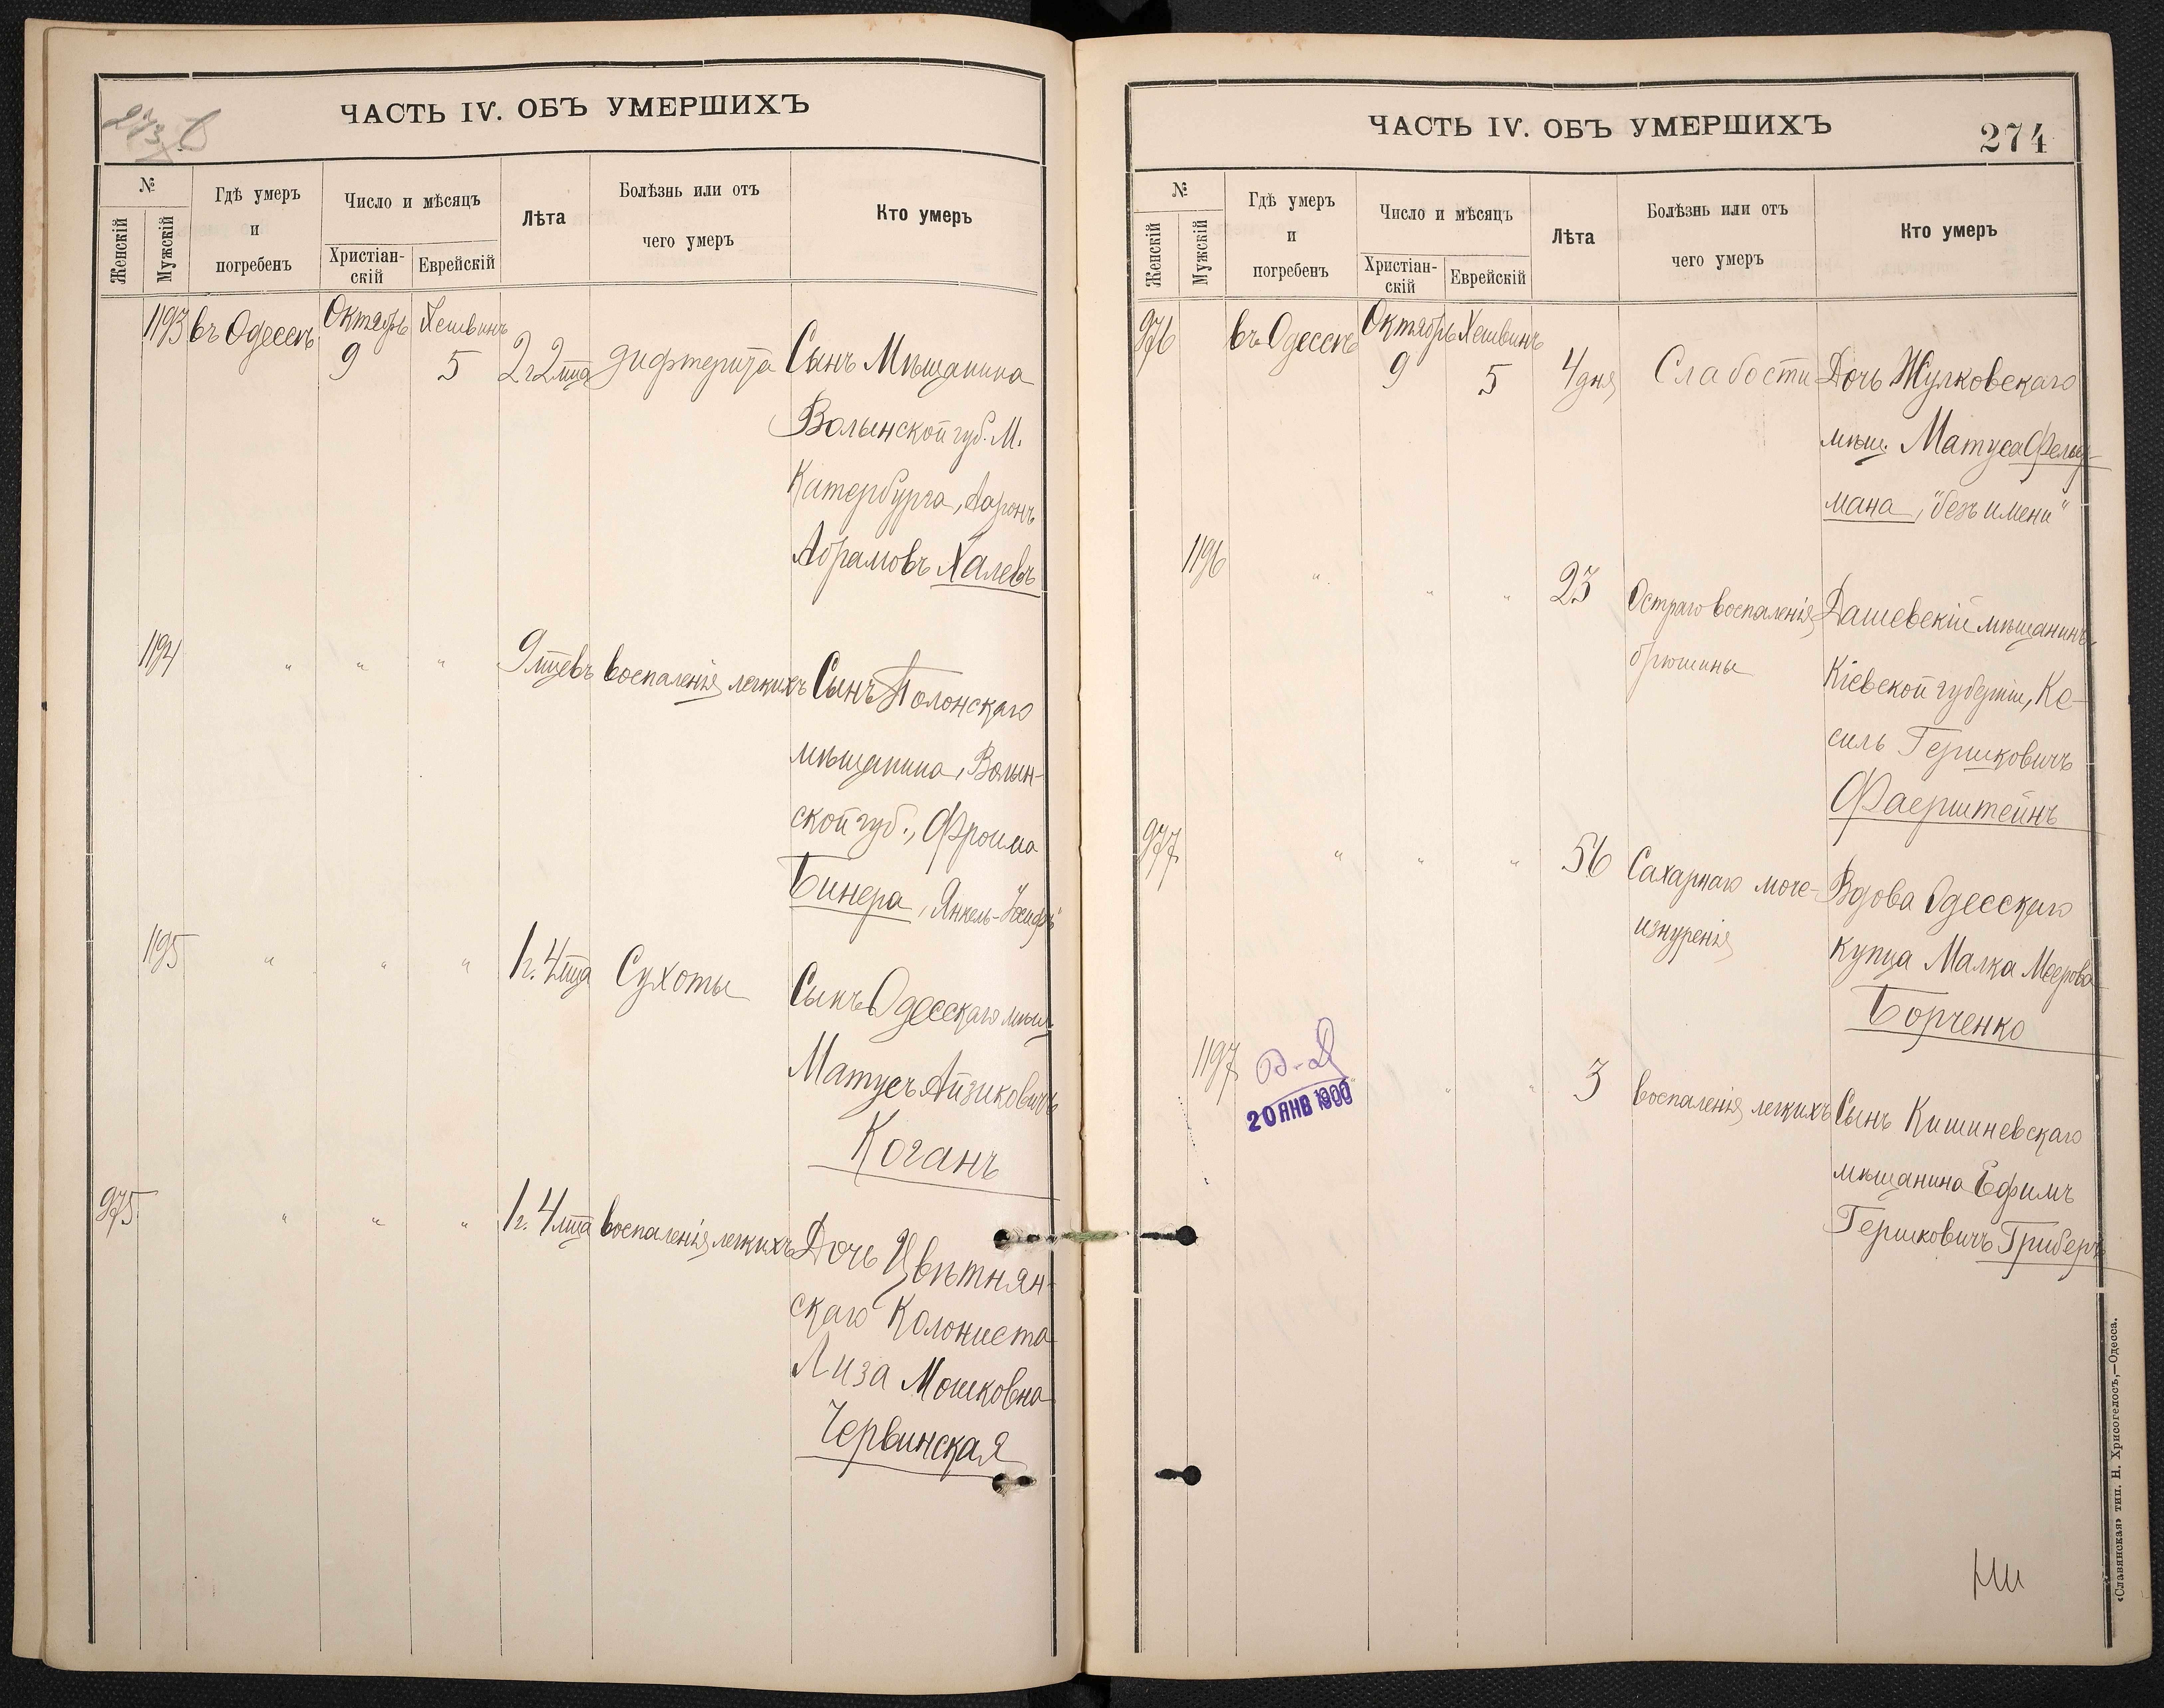 ЧАСТЬ IV. ОБЪ УМЕРШИХЪ
№
Женскій
Мужскій
Гдѣ умеръ
и
погребенъ
Число и мѣсяцъ
Христіан-
скій
Еврейскій
Лѣта
Болѣзнь или отъ
чего умеръ
Кто умеръ
1193 въ Одессѣ Октябрь 9 Хешвинъ 5 2 г 2 мца дифтерита Сынъ Мѣщанина
Волынской губ. М.
Катербурга, Ааронъ
Абрамовъ Халевъ
1194 " " " 9 мцевъ воспаленія легкихъ Сынъ Полонскаго
мѣщанина, Волын-
ской губ., Фроима
Бинера, Янкель-Іосифъ"
1195 " " " 1 г. 4 мца Сухоты Сынъ Одесскаго мѣщ.
Матусъ Айзиковичъ
Коганъ
975 " " " 1 г. 4 мца воспаленія легкихъ Дочь Цвѣтнян-
скаго Колониста
Лиза Мошковна
Червинская
ЧАСТЬ IV. ОБЪ УМЕРШИХЪ
274
№
Женскій
Мужскій
Гдѣ умеръ
и
погребенъ
Число и мѣсяцъ
Христіан-
скій
Еврейскій
Лѣта
Болѣзнь или отъ
чего умеръ
Кто умеръ
976 въ Одессѣ Октябрь 9 Хешвинъ 5 4 дня Слабости Дочь Жулковскаго
мѣщ. Матуса Фельд-
мана, "безъ имени"
1196 " " " 23 Остраго воспаленія Дашевскій мѣщанинъ,
брюшины Кіевской губерніи, Ке-
силь Гершковичъ
Фаерштейнъ
977 " " " 56 Сахарнаго моче- Вдова Одесскаго
изнуренія купца Малка Меерова
Борченко
1197 " " 3 воспаленія легкихъ Сынъ Кишиневскаго
20 ЯНВ 1900
мѣщанина Ефимъ
Гершковичъ Гриберъ
«Славянская» тип. Н. Хрисогелосъ,—Одесса.